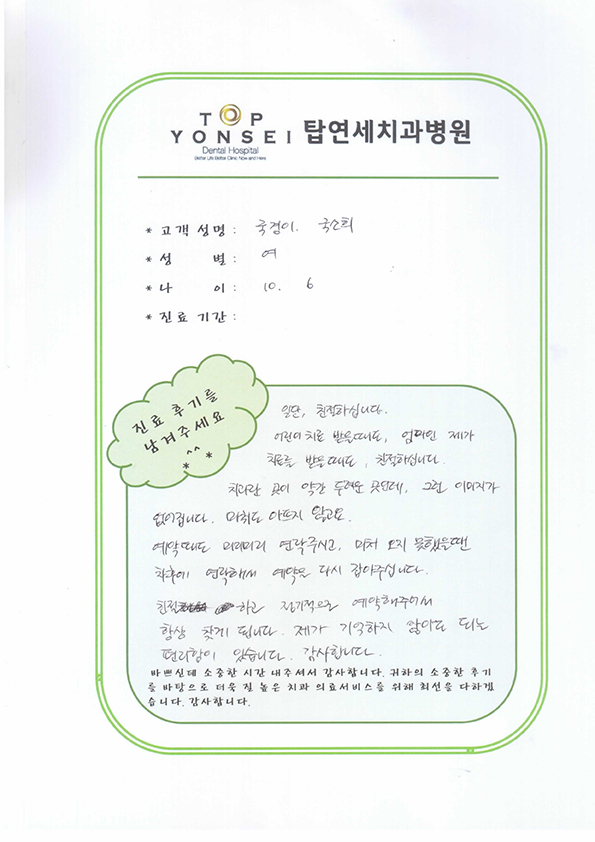 TOP
YONSEI
Dental Hospital
Better Life Better Clinic Now and Here
탑연세치과병원
* 고객 성명 : 국겸이. 국소희
* 성 별 : 여
* 나 이 : 10. 6
* 진료 기간 :
진료 후기를
남겨주세요
^^
* *
일단, 친절하십니다.
어린이 치료 받을때도, 엄마인 제가
치료를 받을때도, 친절하십니다.
치과란 곳이 약간 두려운 곳인데, 그런 이미지가
없어집니다. 마취도 아프지 않고요.
예약때도 미리미리 연락주시고, 미처 오지 못했을땐
차후에 연락해서 예약을 다시 잡아주십니다.
친절 하고 정기적으로 예약해주어서
항상 찾게 됩니다. 제가 기억하지 않아도 되는
편리함이 있습니다. 감사합니다.
바쁘신데 소중한 시간 내주셔서 감사합니다. 귀하의 소중한 후기
를 바탕으로 더욱 질 높은 치과 의료서비스를 위해 최선을 다하겠
습니다. 감사합니다.